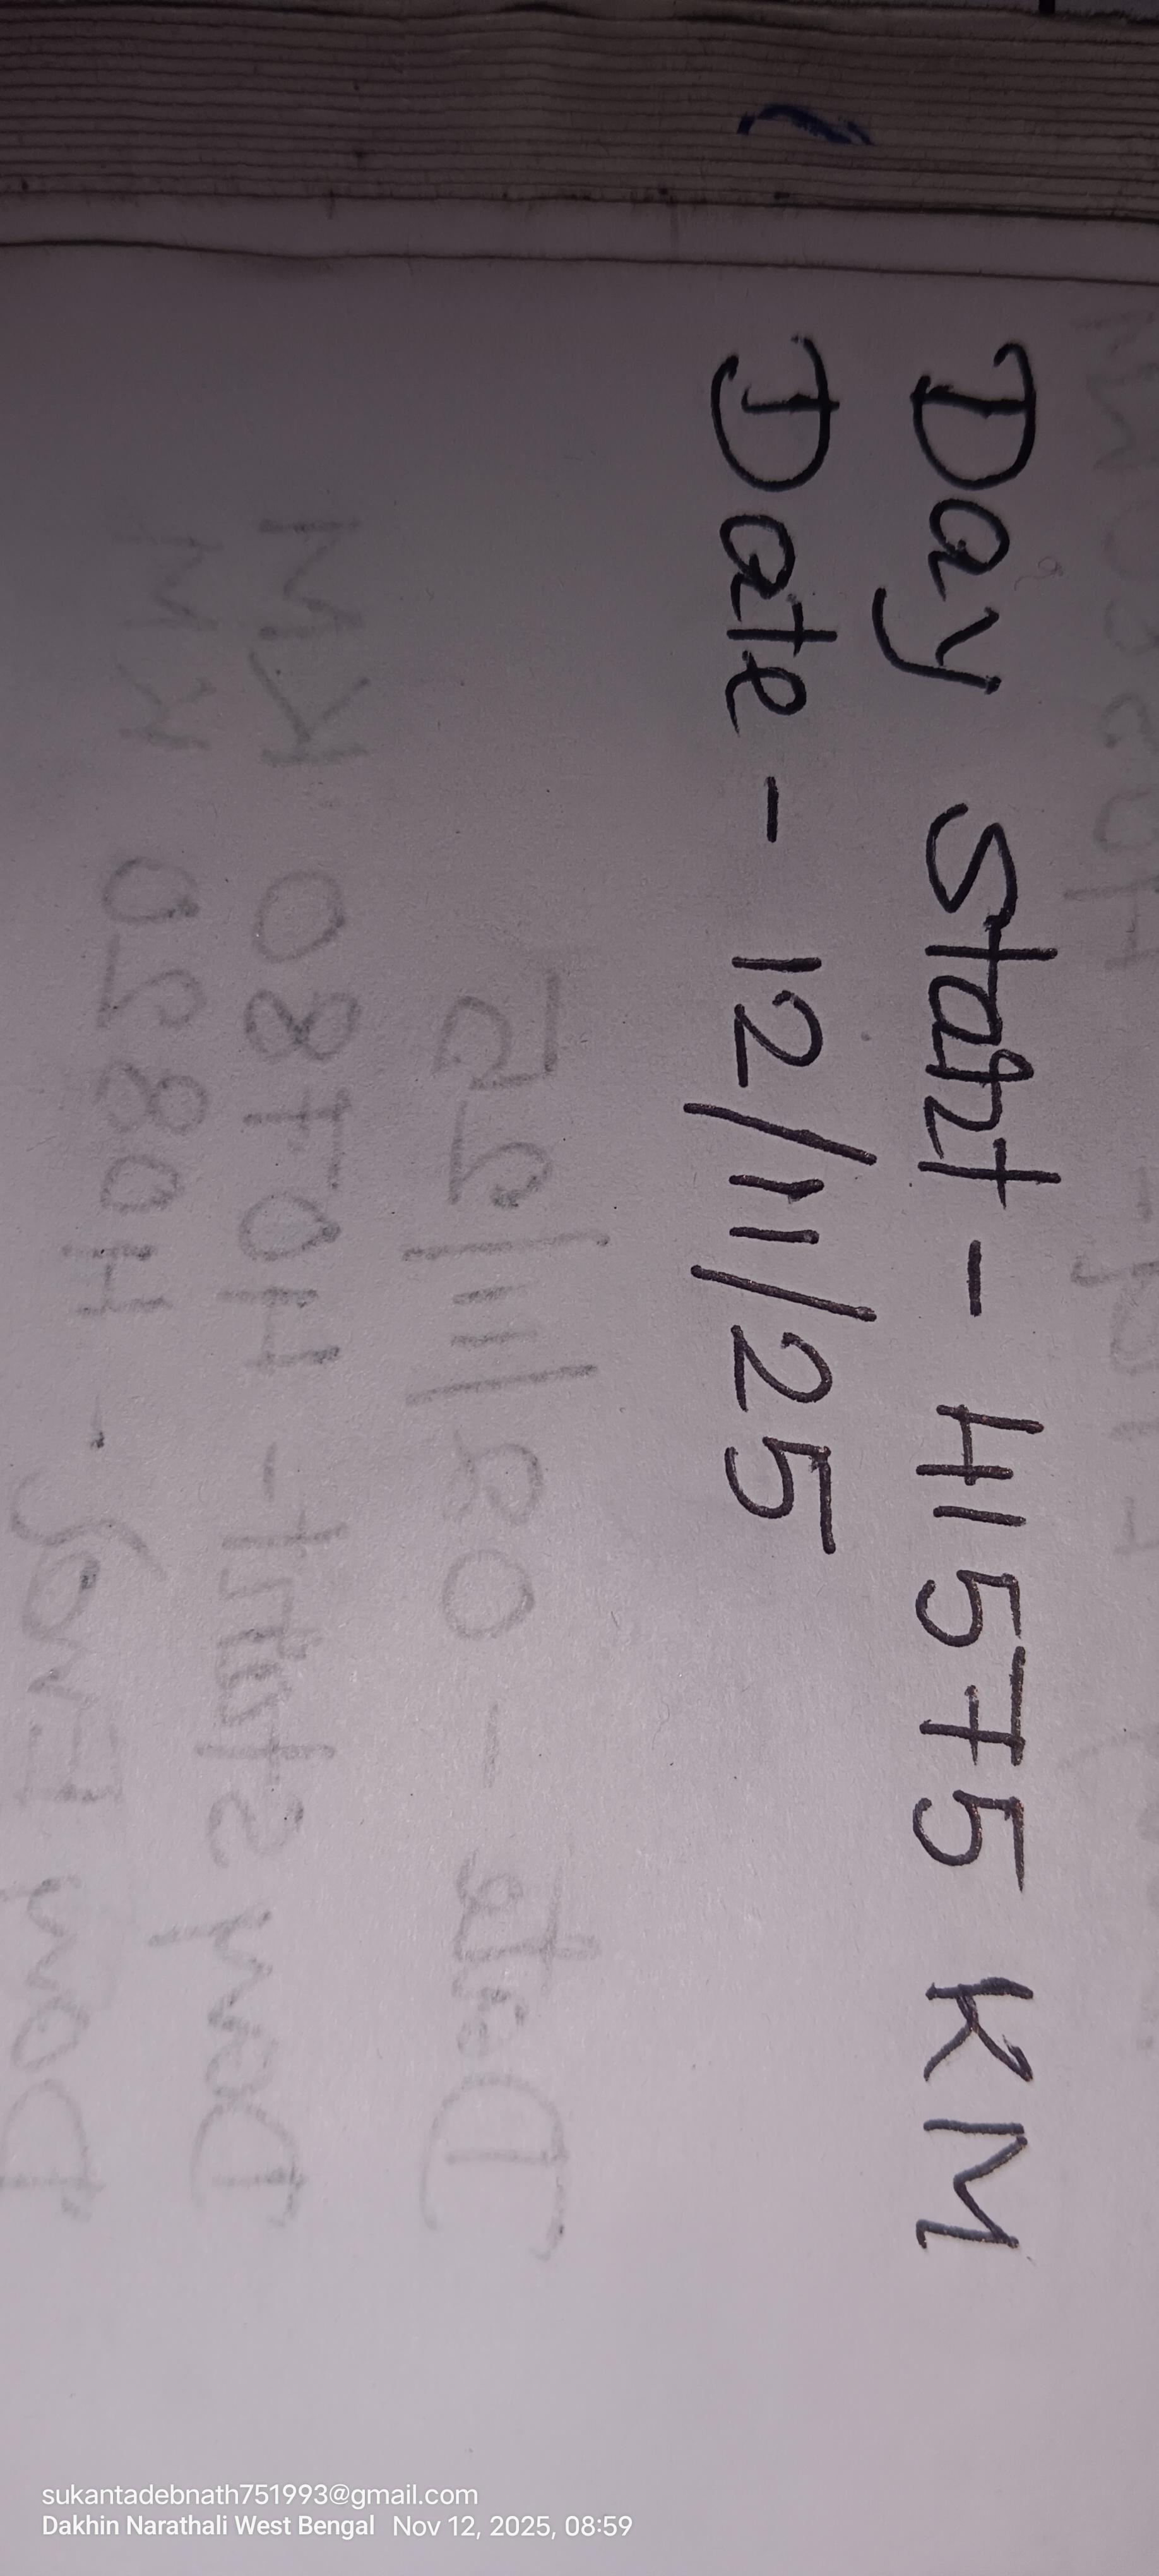 Day Start - 41575 KM
Date - 12/11/25
sukantadebnath751993@gmail.com
Dakhin Narathali West Bengal Nov 12, 2025, 08:59